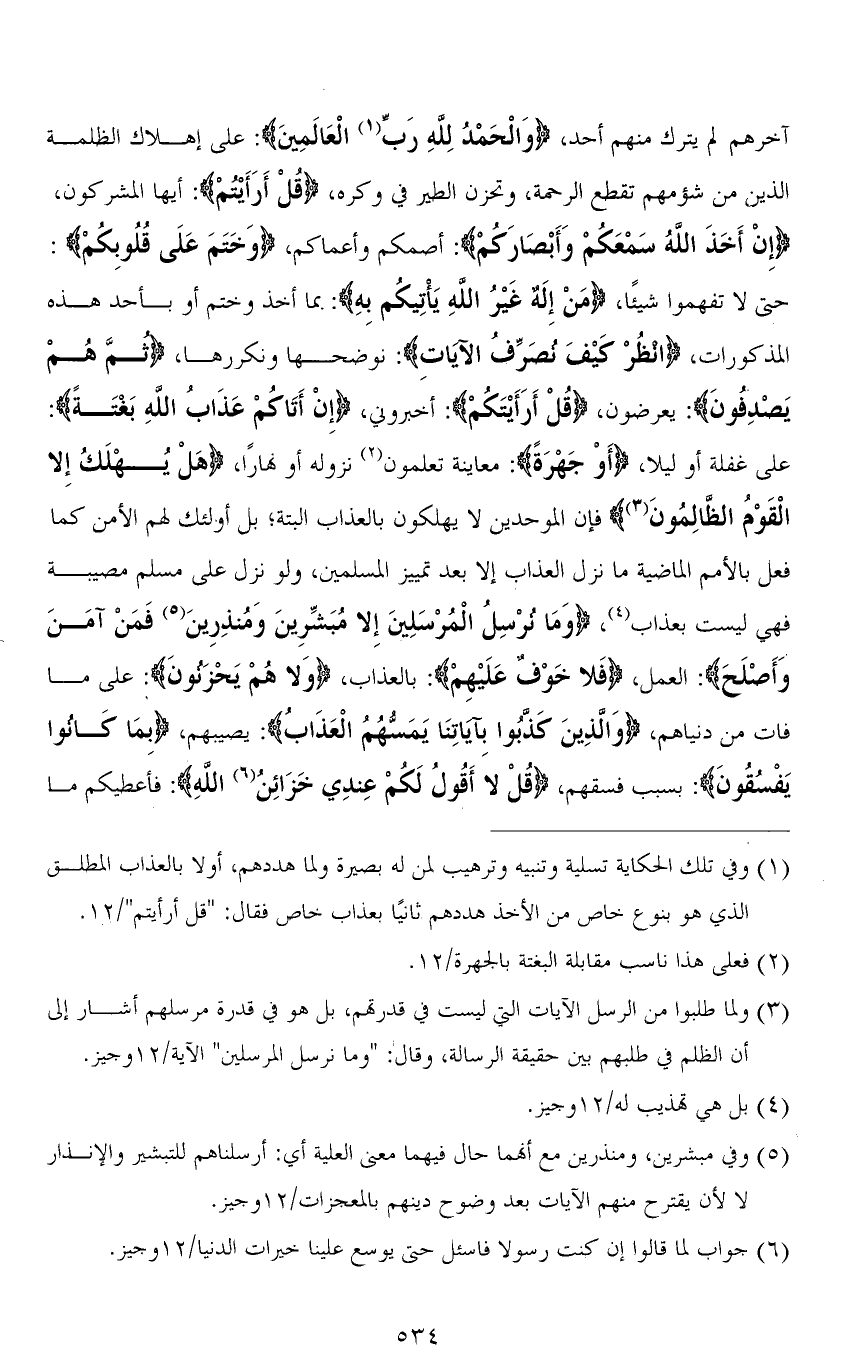 آخرهم لم يترك منهم أحد، ﴿وَالْحَمْدُ لِلَّهِ رَبِّ(١) الْعَالَمِينَ﴾: على إهــلاك الظلمــة
الذين من شؤمهم تقطع الرحمة، وتحزن الطير في وكره، ﴿قُلْ أَرَأَيْتُمْ﴾: أيها المشركون،
﴿إِنْ أَخَذَ اللَّهُ سَمْعَكُمْ وَأَبْصَارَكُمْ﴾: أصمكم وأعماكم، ﴿وَخَتَمَ عَلَى قُلُوبِكُمْ﴾ :
حتى لا تفهموا شيئًا، ﴿مَنْ إِلَهٌ غَيْرُ اللَّهِ يَأْتِيكُم بِهِ﴾: بما أخذ وختم أو بــأحد هــذه
المذكورات، ﴿انْظُرْ كَيْفَ نُصَرِّفُ الآيَاتِ﴾: نوضحــها ونكررهــا، ﴿ثُــمَّ هُــمْ
يَصْدِفُونَ﴾: يعرضون، ﴿قُلْ أَرَأَيْتَكُمْ﴾: أخبروني، ﴿إِنْ أَتَاكُمْ عَذَابُ اللَّهِ بَغْتَــةً﴾:
على غفلة أو ليلا، ﴿أَوْ جَهْرَةً﴾: معاينة تعلمون(٢) نزوله أو نهارًا، ﴿هَلْ يُــهْلَكُ إِلا
الْقَوْمُ الظَّالِمُونَ(٣)﴾ فإن الموحدين لا يهلكون بالعذاب البتة؛ بل أولئك لهم الأمن كما
فعل بالأمم الماضية ما نزل العذاب إلا بعد تمييز المسلمين، ولو نزل على مسلم مصيبــة
فهي ليست بعذاب(٤)، ﴿وَمَا نُرْسِلُ الْمُرْسَلِينَ إِلا مُبَشِّرِينَ وَمُنذِرِينَ(٥) فَمَنْ آمَــنَ
وَأَصْلَحَ﴾: العمل، ﴿فَلا خَوْفٌ عَلَيْهِمْ﴾: بالعذاب، ﴿وَلا هُمْ يَحْزَنُونَ﴾: على مــا
فات من دنياهم، ﴿وَالَّذِينَ كَذَّبُوا بِآيَاتِنَا يَمَسُّهُمُ الْعَذَابُ﴾: يصيبهم، ﴿بِمَا كَــانُوا
يَفْسُقُونَ﴾: بسبب فسقهم، ﴿قُلْ لا أَقُولُ لَكُمْ عِندِي خَزَائِنُ(٦) اللَّهِ﴾: فأعطيكم مــا
(١) وفي تلك الحكاية تسلية وتنبيه وترهيب لمن له بصيرة ولما هددهم، أولا بالعذاب المطلــق
الذي هو بنوع خاص من الأخذ هددهم ثانيًا بعذاب خاص فقال: "قل أرأيتم"/١٢.
(٢) فعلى هذا ناسب مقابلة البغتة بالجهرة/١٢.
(٣) ولما طلبوا من الرسل الآيات التي ليست في قدرتهم، بل هو في قدرة مرسلهم أشــار إلى
أن الظلم في طلبهم بين حقيقة الرسالة، وقال: "وما نرسل المرسلين" الآية/١٢وجيز.
(٤) بل هي تهذيب له/١٢وجيز.
(٥) وفي مبشرين، ومنذرين مع أنهما حال فيهما معنى العلية أي: أرسلناهم للتبشير والإنــذار
لا لأن يقترح منهم الآيات بعد وضوح دينهم بالمعجزات/١٢وجيز.
(٦) جواب لما قالوا إن كنت رسولا فاسئل حتى يوسع علينا خيرات الدنيا/١٢وجيز.
٥٣٤